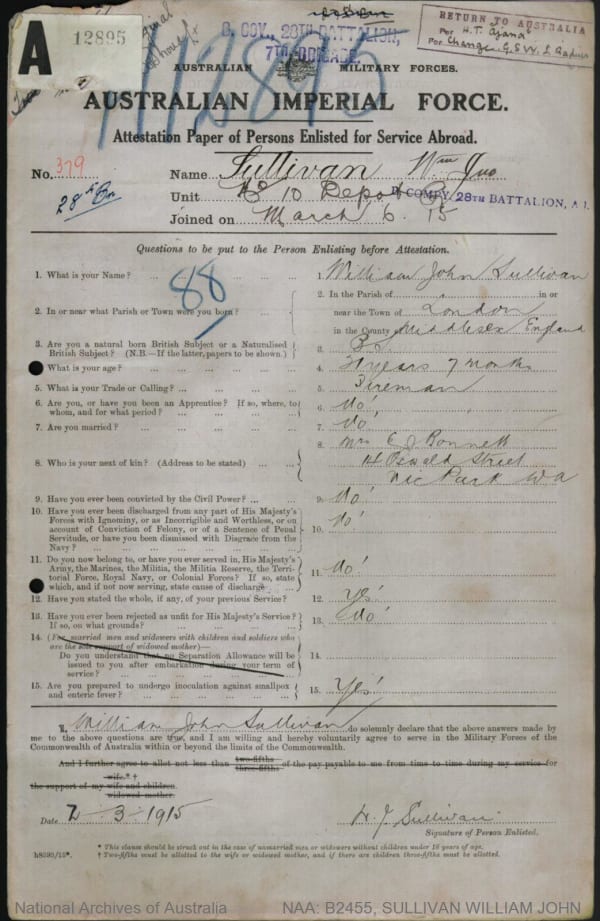 A
12895
B. COY., 28TH BATTALION,
7TH BRIGADE.
RETURN TO AUSTRALIA
Per H.T.
For Change
AUSTRALIAN MILITARY FORCES.
AUSTRALIAN IMPERIAL FORCE.
Attestation Paper of Persons Enlisted for Service Abroad.
No. 379
Name Sullivan Wm Jno
28th Bn
Unit No 10 Depot
COMPY, 28TH BATTALION, A.I.
Joined on March 6. 15
Questions to be put to the Person Enlisting before Attestation.
88
1. What is your Name? ... 1. William John Sullivan
2. In or near what Parish or Town were you born? ... 2. In the Parish of in or
near the Town of London
in the County Middlesex England
3. Are you a natural born British Subject or a Naturalised
British Subject? (N.B.—If the latter, papers to be shown.) 3.
What is your age? ... 4. years 7 months
5. What is your Trade or Calling? ... 5. Fireman
6. Are you, or have you been an Apprentice? If so, where, to
whom, and for what period? ... 6. No!
7. Are you married? ... 7. No
8. Who is your next of kin? (Address to be stated) ... 8. Mrs E J Bonnett
14 Oswald Street
Vic Park W A
9. Have you ever been convicted by the Civil Power? ... 9. No!
10. Have you ever been discharged from any part of His Majesty's
Forces with Ignominy, or as Incorrigible and Worthless, or on
account of Conviction of Felony, or of a Sentence of Penal
Servitude, or have you been Dismissed with Disgrace from the
Navy? ... 10. No!
11. Do you now belong to, or have you ever served in, His Majesty's
Army, the Marines, the Militia, the Militia Reserve, the Terri-
torial Force, Royal Navy, or Colonial Forces? If so, state
which, and if not now serving, state cause of discharge 11. No!
12. Have you stated the whole, if any, of your previous Service? 12. Yes!
13. Have you ever been rejected as unfit for His Majesty's Service?
If so, on what grounds? 13. No!
14. (For married men and widowers with children and soldiers who
are the sole support of widowed mother)—
Do you understand that no Separation Allowance will be
issued to you after embarkation during your term of
service? ... 14.
15. Are you prepared to undergo inoculation against smallpox
and enteric fever? ... 15. Yes!
I, William John Sullivan do solemnly declare that the above answers made by
me to the above questions are true, and I am willing and hereby voluntarily agree to serve in the Military Forces of the
Commonwealth of Australia within or beyond the limits of the Commonwealth.
And I further agree to allot not less than two-fifths three-fifths of the pay payable to me from time to time during my service for
the support of my wife.* † wife and children. widowed mother.
Date 2-3-1915
W. J. Sullivan
Signature of Person Enlisted.
* This clause should be struck out in the case of unmarried men or widowers without children under 18 years of age.
† Two-fifths must be allotted to the wife or widowed mother, and if there are children three-fifths must be allotted.
National Archives of Australia
NAA: B2455, SULLIVAN WILLIAM JOHN